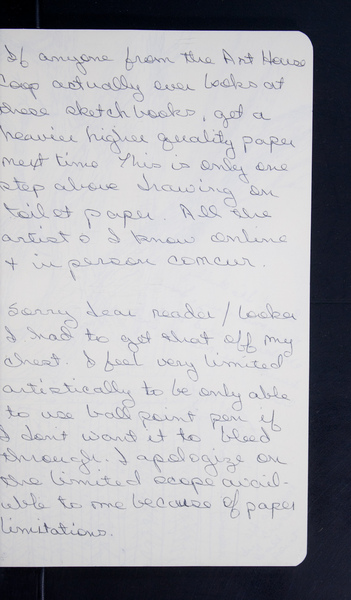 If anyone from the Art House
Coop actually ever looks at
these sketchbooks, get a
heavier higher quality paper
next time. This is only one
step above drawing on
toilet paper. All the
artists I know online
+ in person concur.
Sorry dear reader/looker
I had to get that off my
chest. I feel very limited
artistically to be only able
to use ball point pen if
I dont want it to bleed
through. I apologize on
the limited scope avail-
able to me because of paper
limitations.